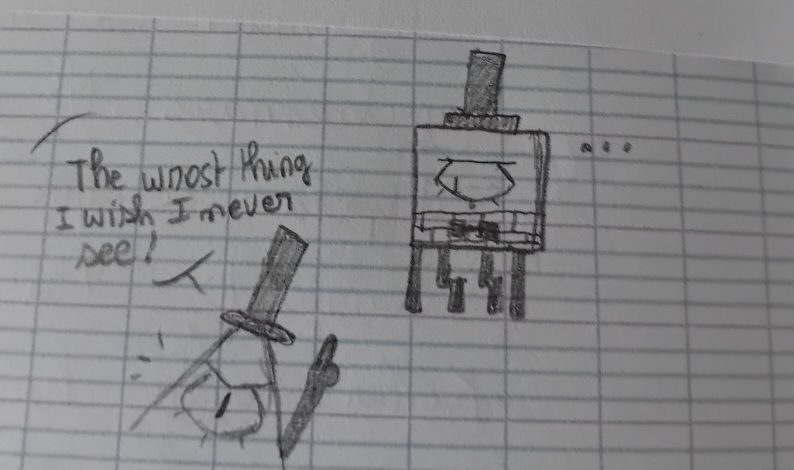 The wnost thing
I wish I never
see!
...